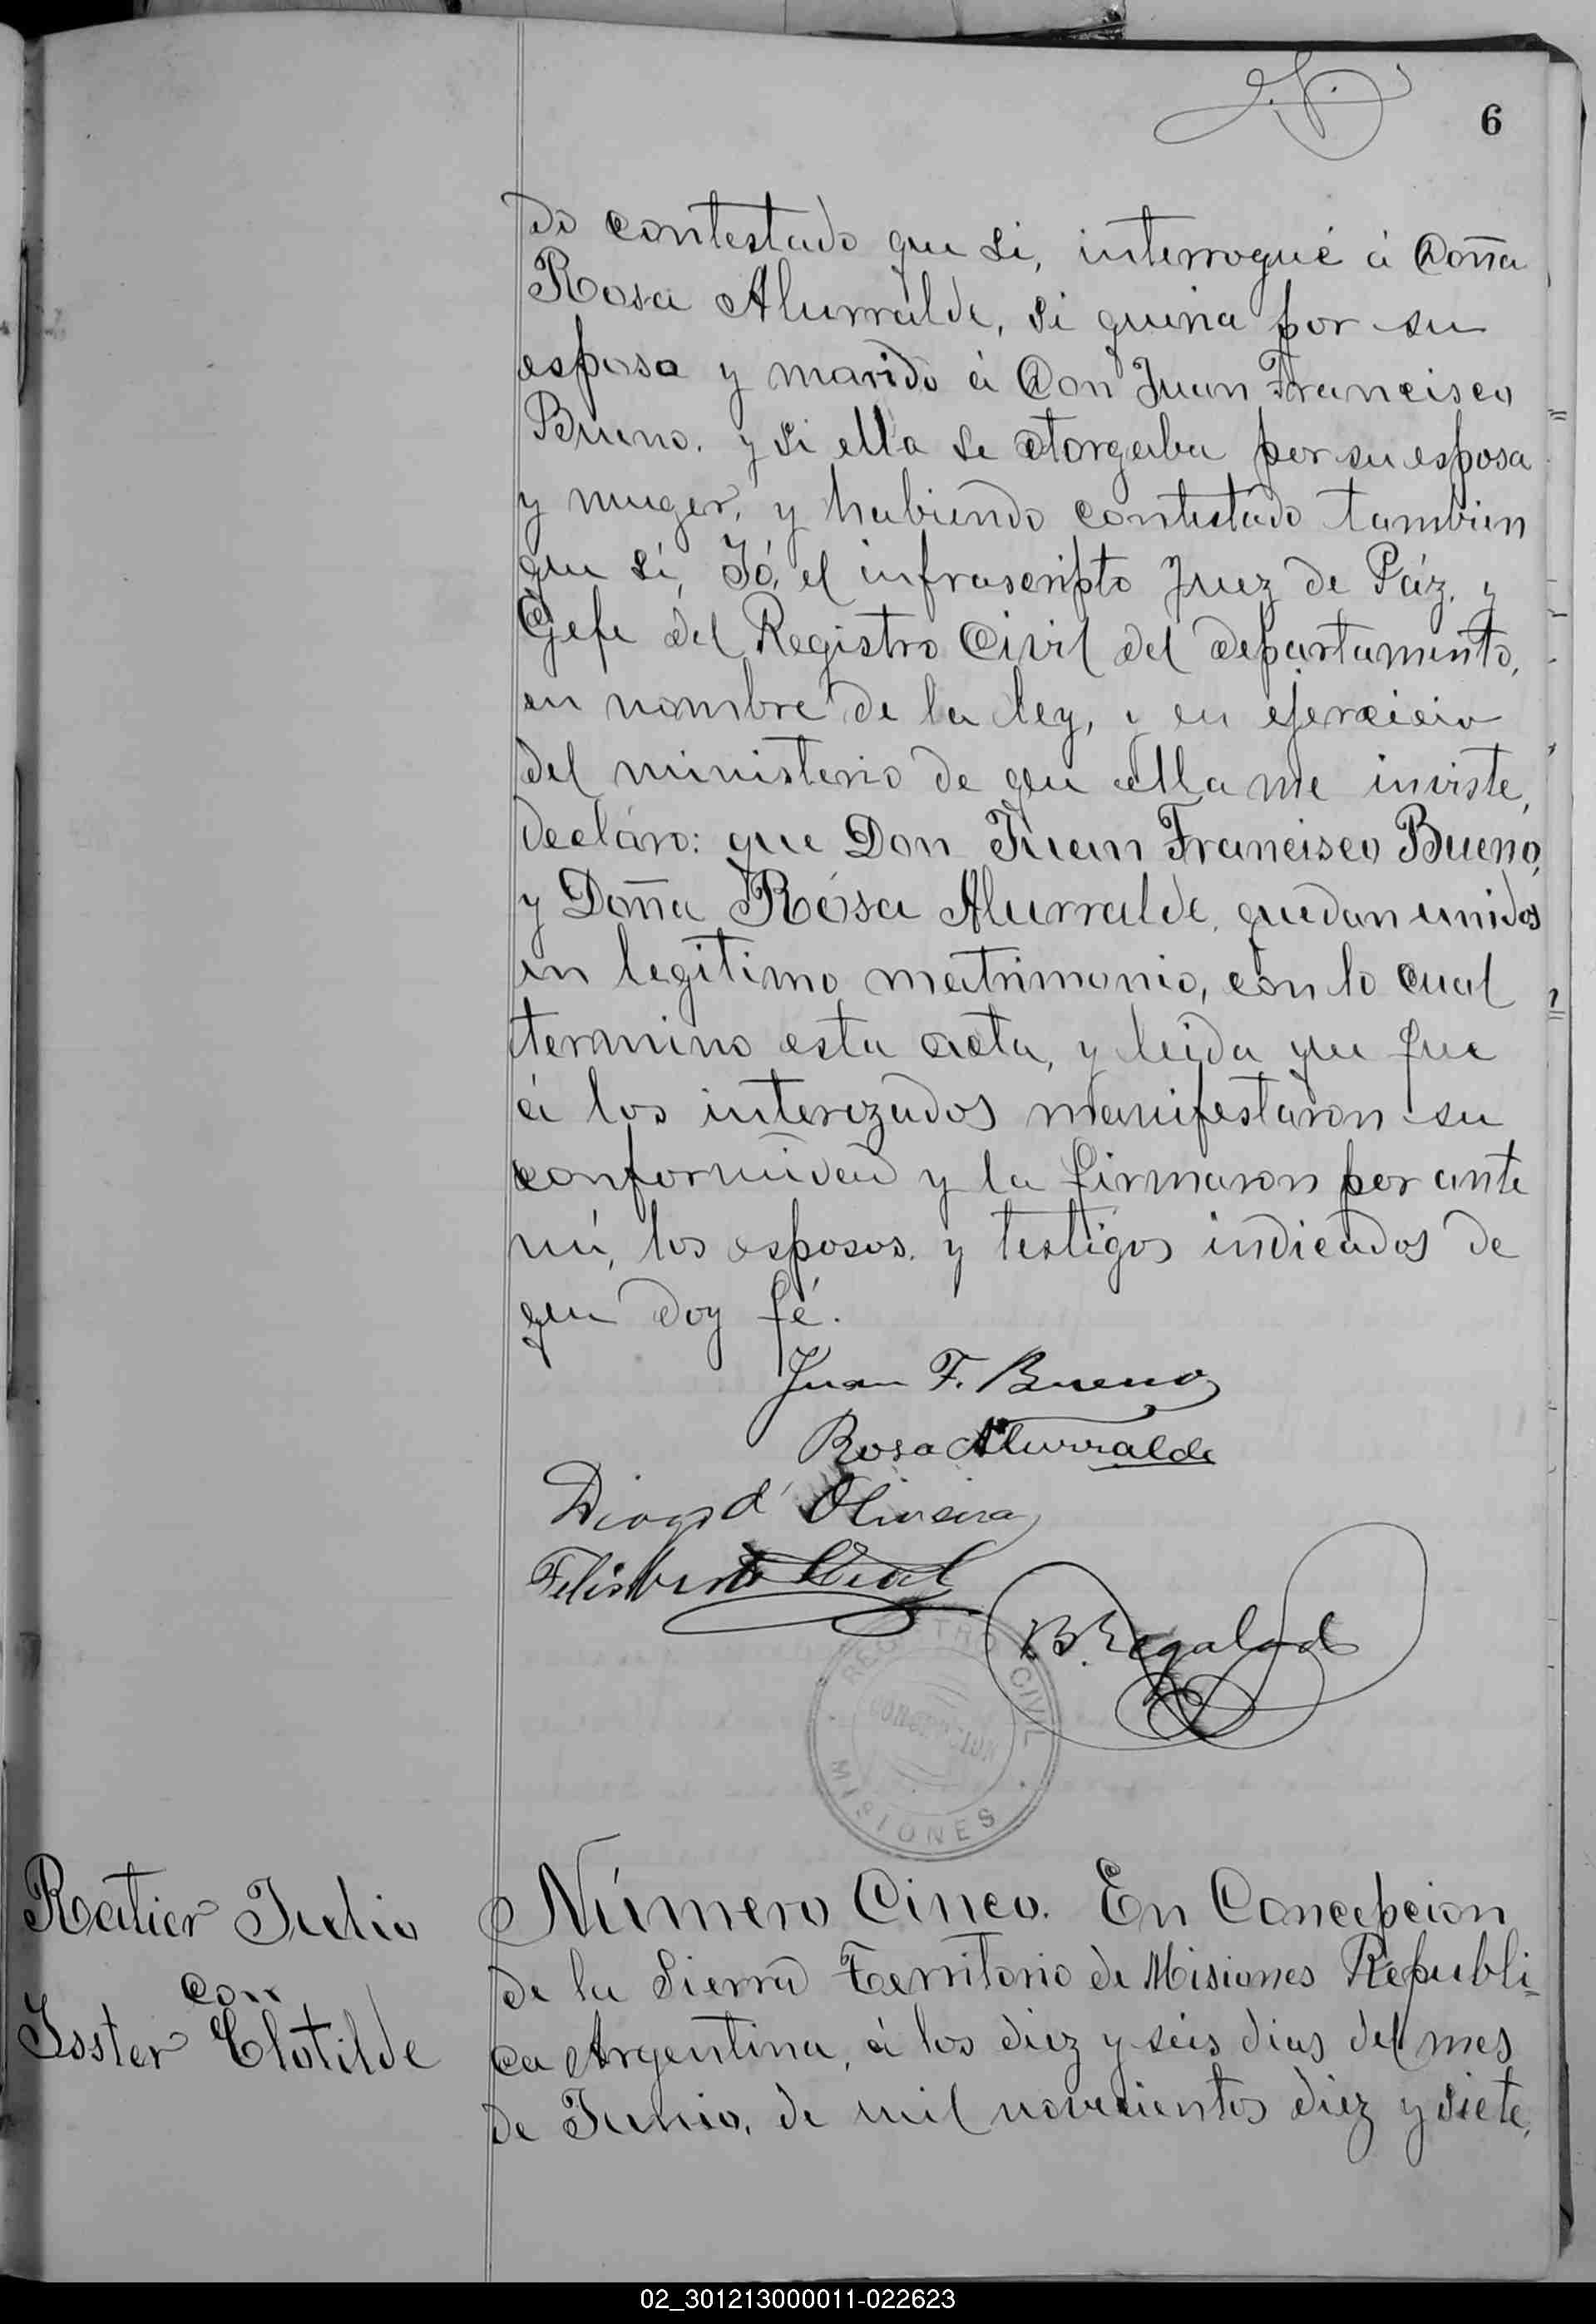 6
do contestado que si, interrogué á Doña
Rosa Alurralde, si queria por su
esposo y marido á Don Juan Francisco
Bueno. y si ella se otorgaba por su esposa
y muger, y habiendo contestado tambien
que si, Yó, el infrascripto Juez de Páz, y
Gefe del Registro Civil del departamento,
en nombre de la ley, y en ejercicio
del ministerio de que ella me inviste,
decláro: que Don Juan Francisco Bueno,
y Doña Rosa Alurralde, quedan unidos
en legitimo matrimonio, con lo cual
termino esta acta, y leida que fue
á los interezados manifestaron su
conformidad y la firmaron por ante
mi, los esposos. y testigos indicados de
que doy fé.
Juan F. Bueno
Rosa Alurralde
Diogo d' Oliveira
Felisberto Leal
B. Regalado
REGISTRO CIVIL
CONCEPCION
MISIONES
Ratier Julio
con
Isster Clotilde
Número Cinco. En Concepcion
de la Sierra Territorio de Misiones Republi-
ca Argentina, á los diez y seis dias del mes
de Junio, de mil novecientos diez y siete,
02_301213000011-022623